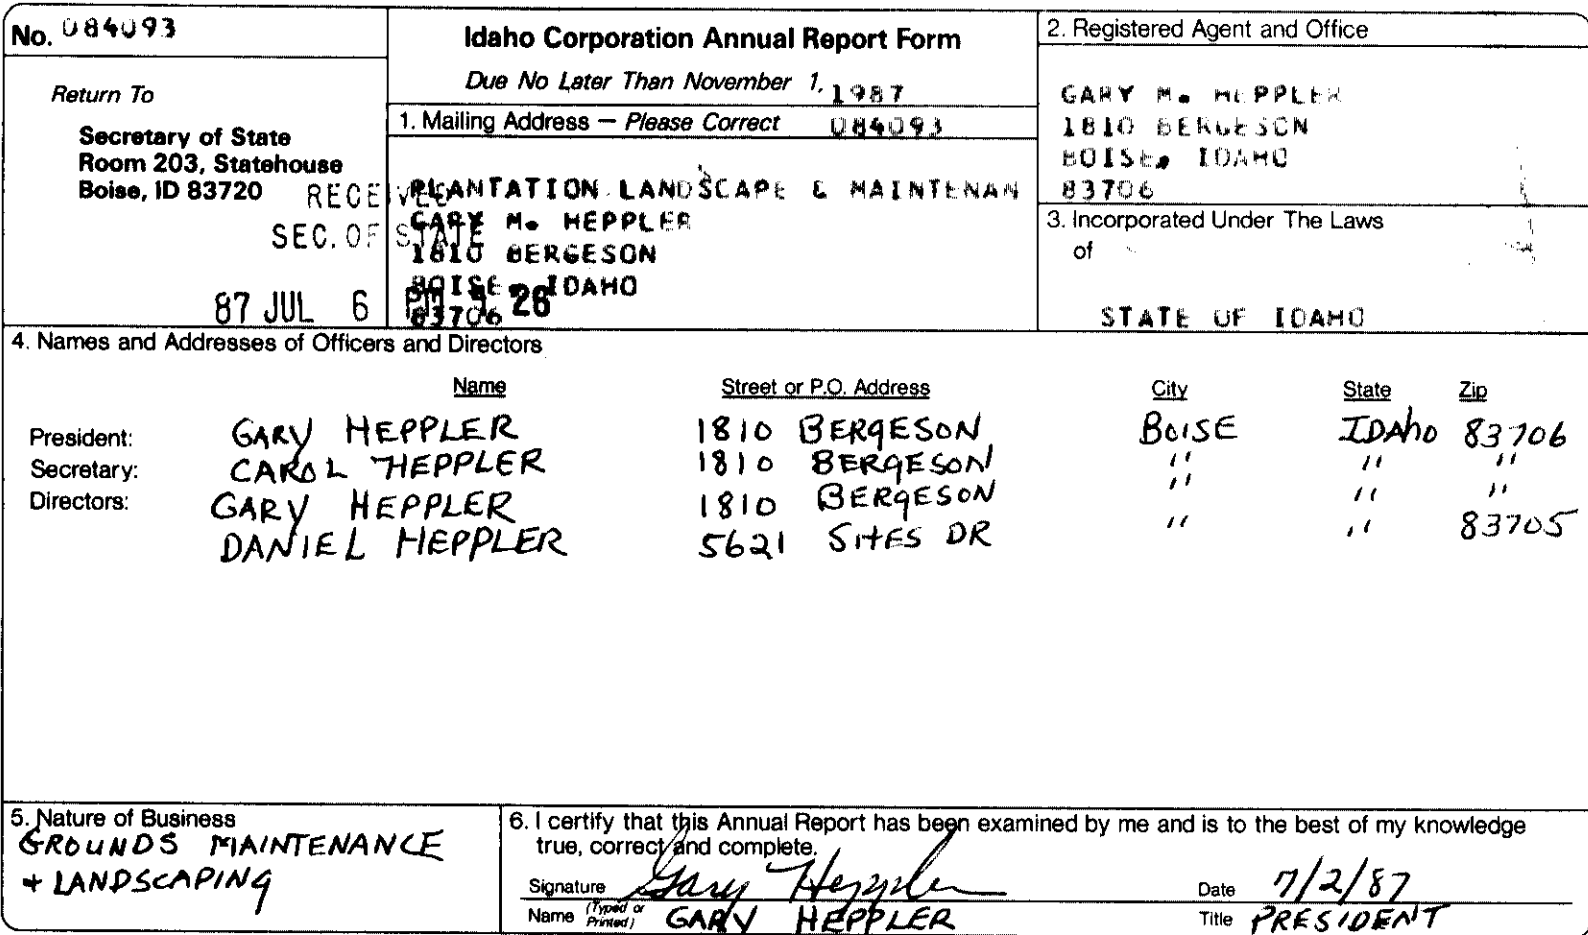 No. 084093
Idaho Corporation Annual Report Form
Due No Later Than November 1, 1987
Return To
Secretary of State
Room 203, Statehouse
Boise, ID 83720
RECEIVED
SEC. OF STATE
87 JUL 6 PM 26
1. Mailing Address — Please Correct 084093
PLANTATION LANDSCAPE & MAINTENAN
GARY M. HEPPLER
1810 BERGESON
BOISE, IDAHO
83706
2. Registered Agent and Office
GARY M. HEPPLER
1810 BERGESON
BOISE, IDAHO
83706
3. Incorporated Under The Laws
of
STATE OF IDAHO
4. Names and Addresses of Officers and Directors
Name Street or P.O. Address City State Zip
President: GARY HEPPLER 1810 BERGESON BOISE IDAHO 83706
Secretary: CAROL HEPPLER 1810 BERGESON " " "
Directors: GARY HEPPLER 1810 BERGESON " " "
DANIEL HEPPLER 5621 SITES DR " " 83705
5. Nature of Business
GROUNDS MAINTENANCE
+ LANDSCAPING
6. I certify that this Annual Report has been examined by me and is to the best of my knowledge
true, correct and complete.
Signature Gary Heppler Date 7/2/87
Name (Typed or Printed) GARY HEPPLER Title PRESIDENT